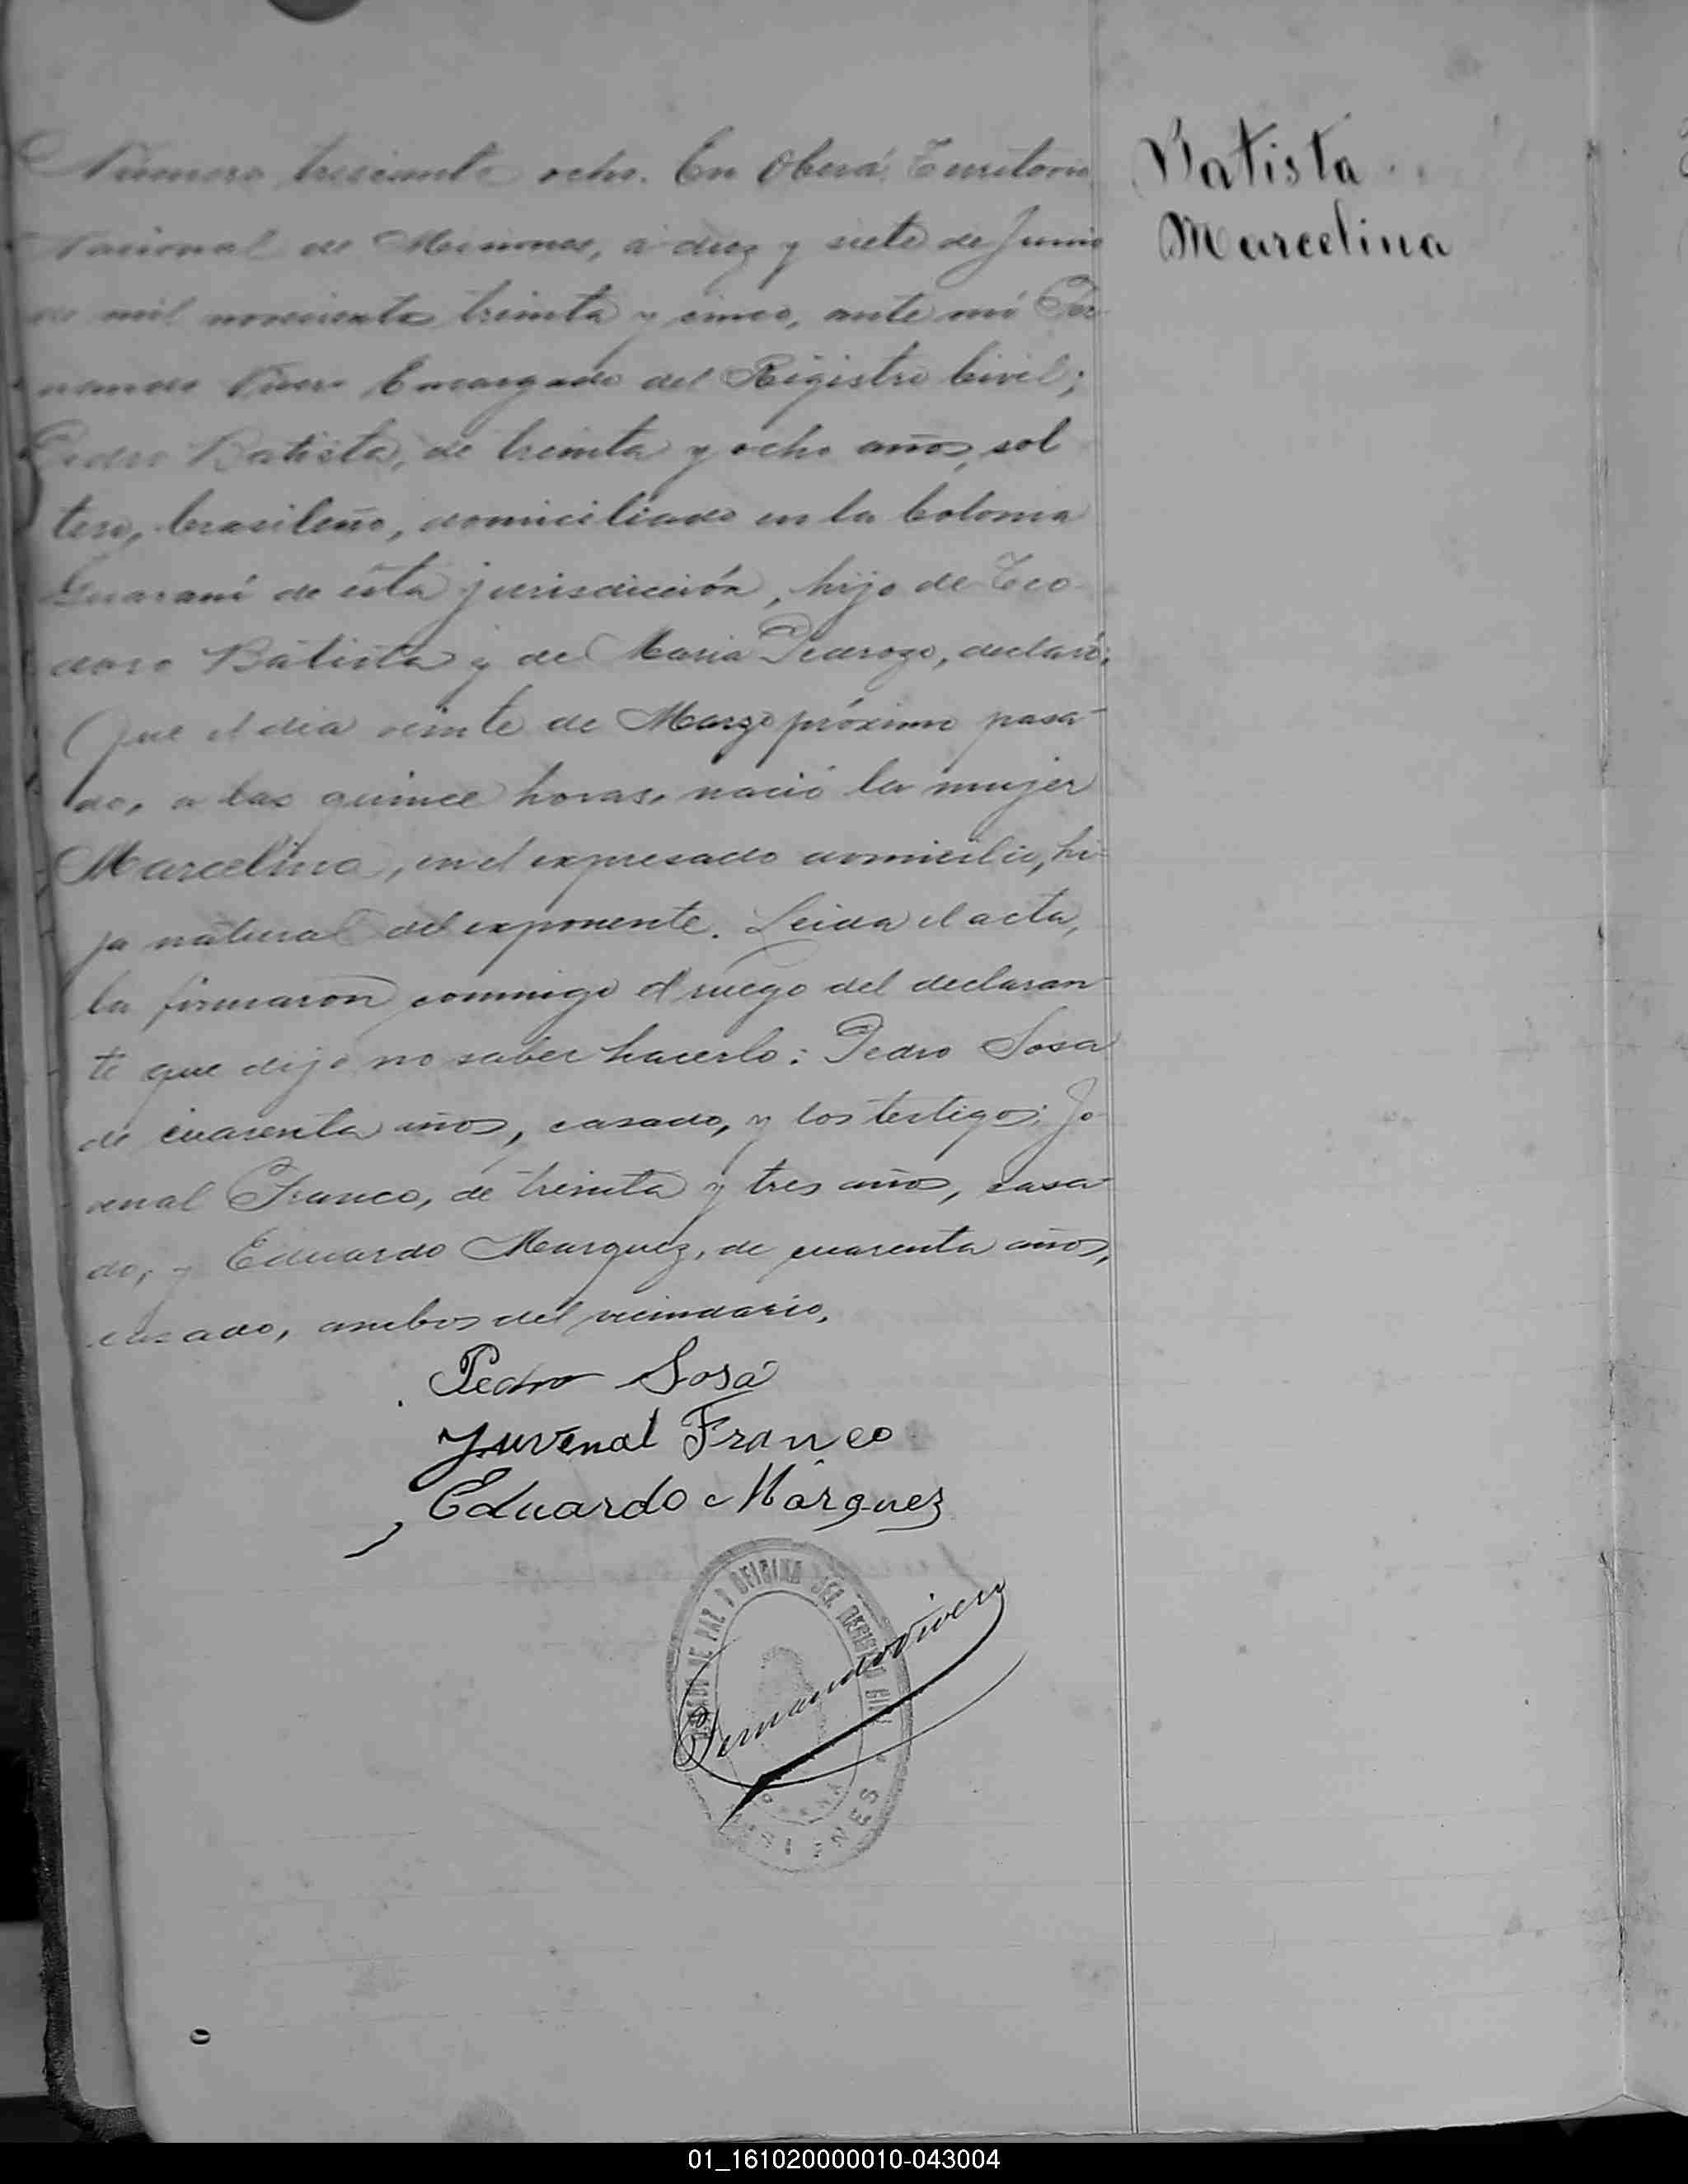 Batista
Marcelina
Número trescientos ocho. En Oberá, Territorio
Nacional de Misiones, a diez y siete de Junio
de mil novecientos treinta y cinco, ante mí Fer-
nando Vivero Encargado del Registro Civil;
Pedro Batista, de treinta y ocho años, sol
tero, brasileño, domiciliado en la Colonia
Guaraní de ésta jurisdicción, hijo de Teo-
doro Batista y de Maria Pedrozo, declaró:
Que el dia veinte de Marzo próximo pasa-
do, a las quince horas, nació la mujer
Marcelina, en el expresado domicilio, hi-
ja natural del exponente. Leida el acta,
la firmaron conmigo el ruego del declaran-
te que dijo no saber hacerlo: Pedro Sosa
de cuarenta años, casado, y los testigos: Jo
venal Franco, de treinta y tres años, casa-
do, y Eduardo Marquez, de cuarenta años,
casado, ambos del vecindario.
Pedro Sosa
Juvenal Franco
Eduardo Márquez
DE PAZ Y OFICINA DEL REGISTRO CIVIL
Fernando Vivero
MISIONES
01_161020000010-043004